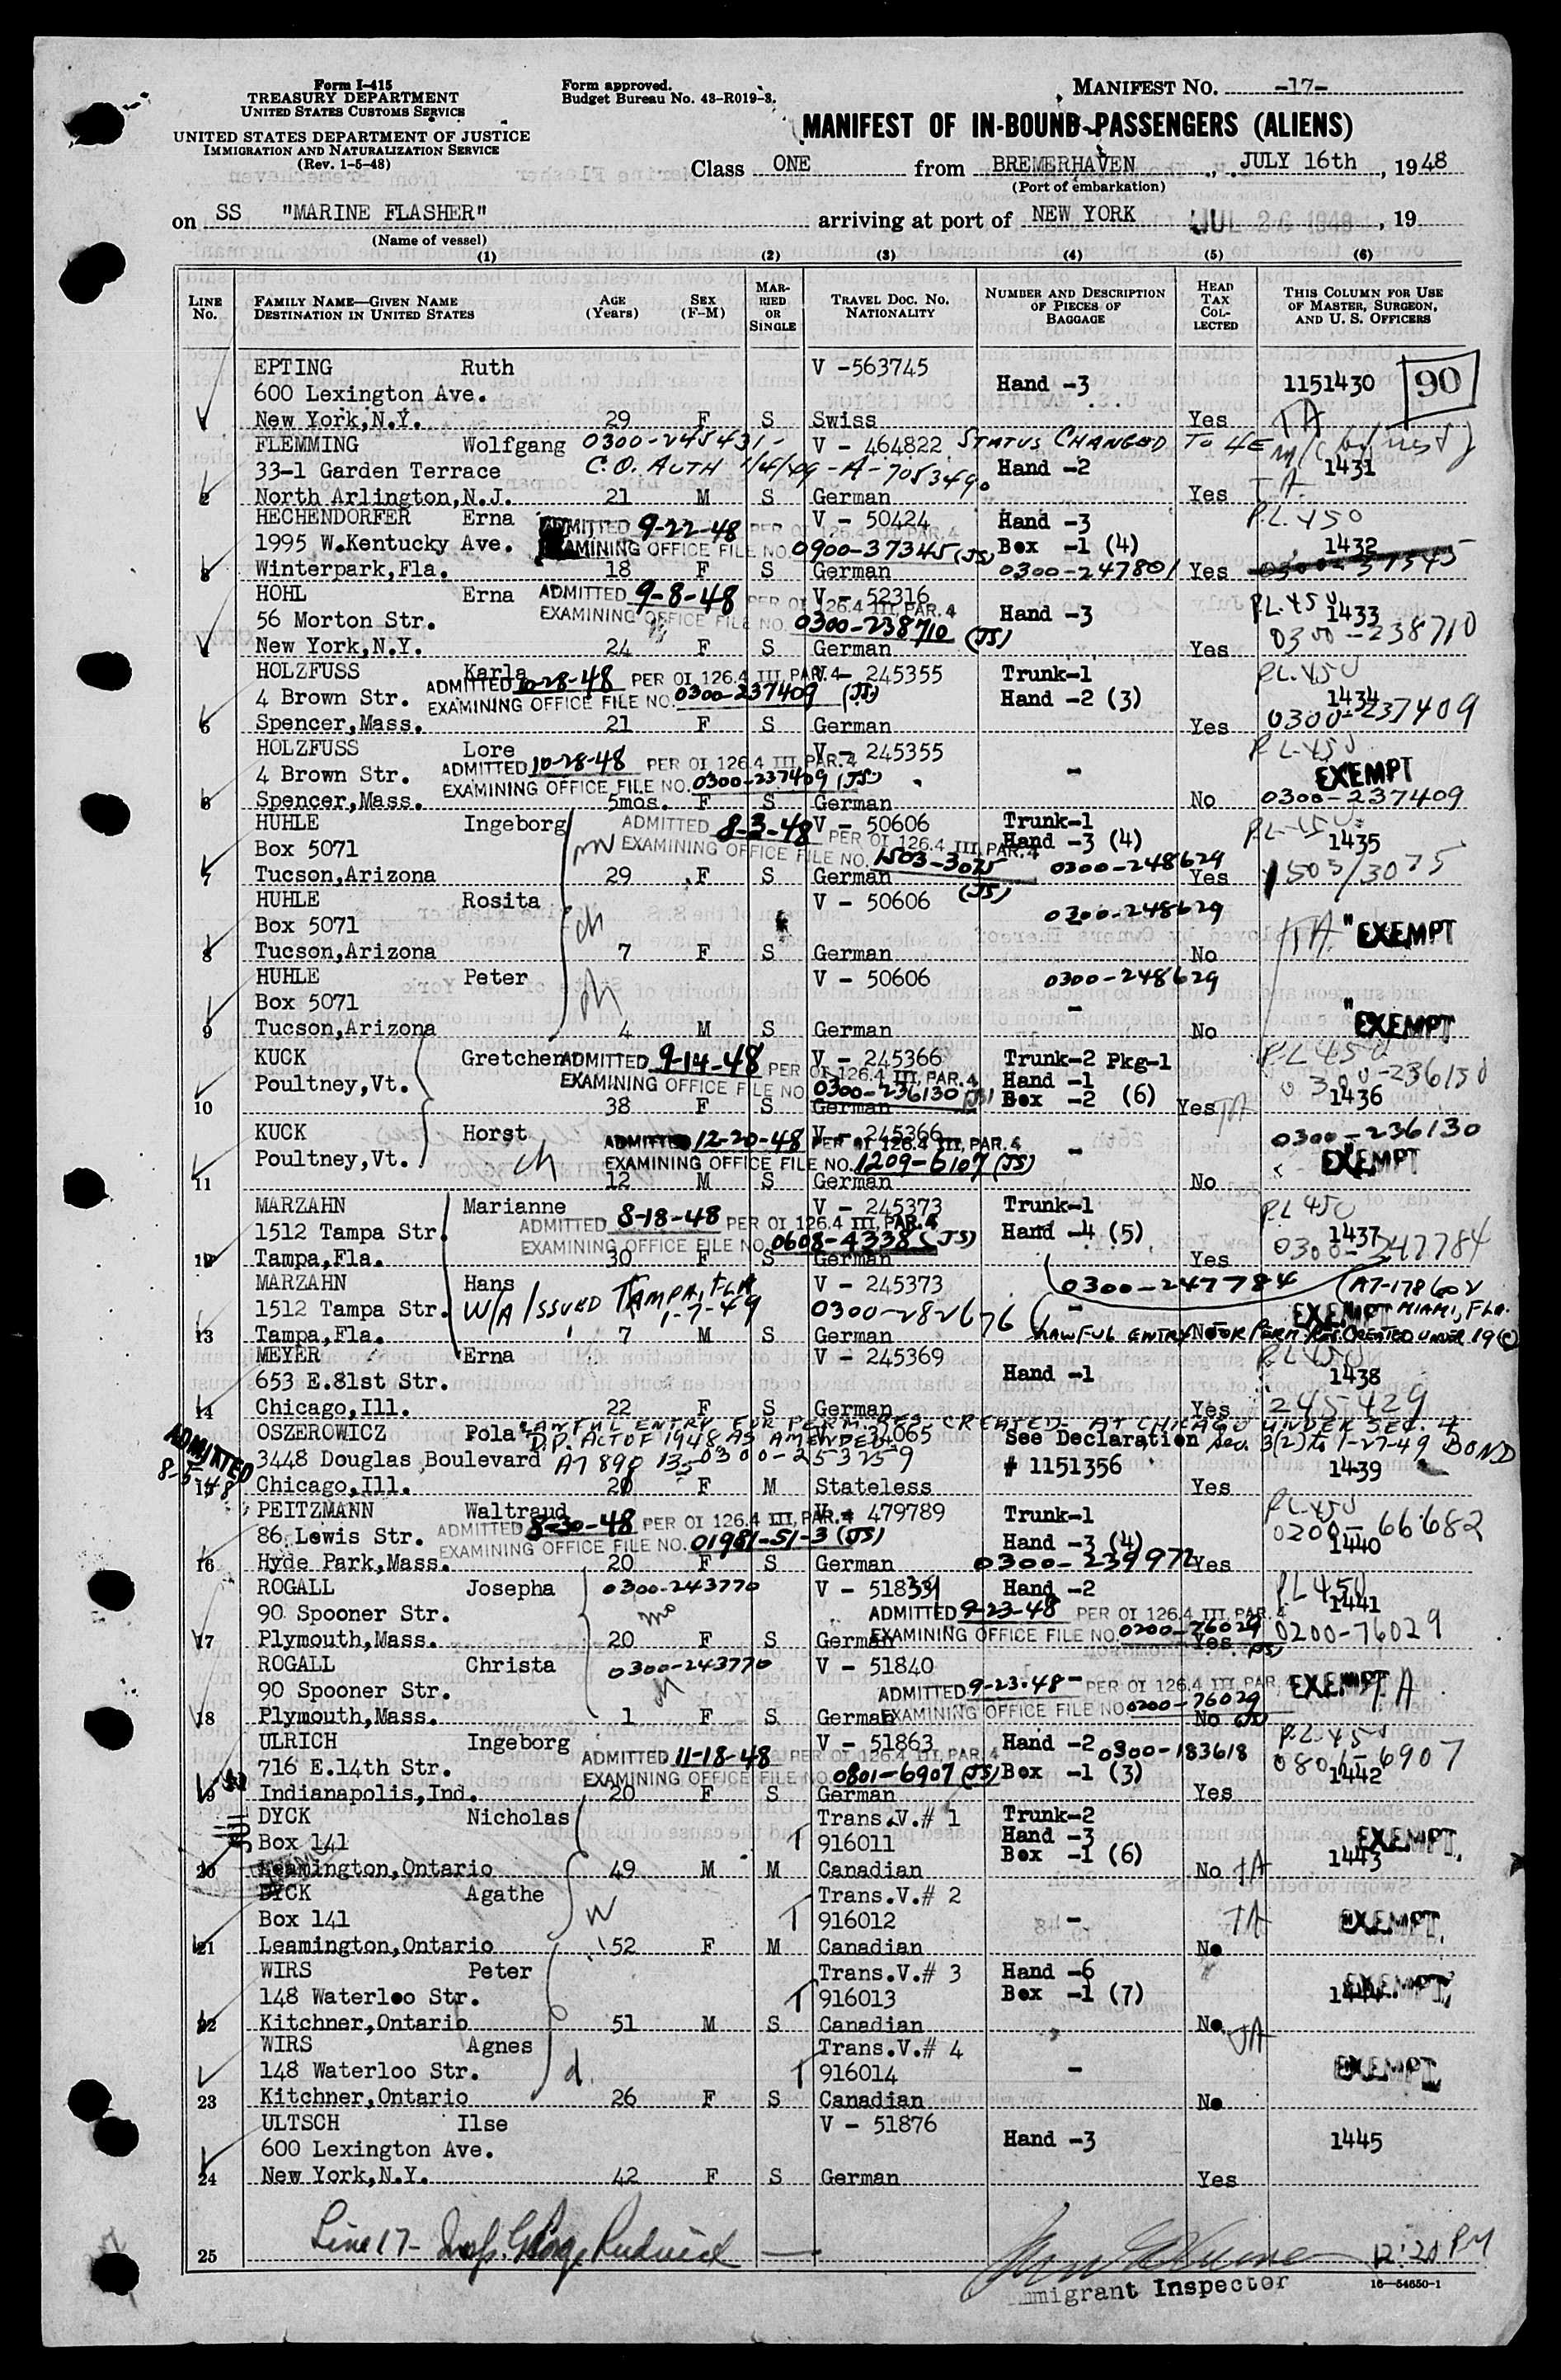 Form I-415
TREASURY DEPARTMENT
UNITED STATES CUSTOMS SERVICE
UNITED STATES DEPARTMENT OF JUSTICE
IMMIGRATION AND NATURALIZATION SERVICE
(Rev. 1-5-48)
Form approved.
Budget Bureau No. 43-R019-3.
MANIFEST NO. -17-
MANIFEST OF IN-BOUND PASSENGERS (ALIENS)
Class ONE from BREMERHAVEN, JULY 16th, 1948
(Port of embarkation)
on SS "MARINE FLASHER" arriving at port of NEW YORK JUL 26 1948, 19
(Name of vessel)
(1) (2) (3) (4) (5) (6)
LINE No. FAMILY NAME—GIVEN NAME DESTINATION IN UNITED STATES AGE (Years) SEX (F-M) MARRIED OR SINGLE TRAVEL DOC. NO. NATIONALITY NUMBER AND DESCRIPTION OF PIECES OF BAGGAGE HEAD TAX COLLECTED THIS COLUMN FOR USE OF MASTER, SURGEON, AND U. S. OFFICERS
EPTING Ruth V -563745
600 Lexington Ave. Hand -3 1151430 90
New York,N.Y. 29 F S Swiss Yes TA
FLEMMING Wolfgang 0300-245431- V - 464822 STATUS CHANGED TO 4E
33-1 Garden Terrace C.O. AUTH 1/4/49 -A-705349. Hand -2 1431
2 North Arlington,N.J. 21 M S German Yes T.A.
HECHENDORFER Erna ADMITTED 9-22-48 PER OI 126.4 III, PAR. 4 V - 50424 Hand -3 P.L. 450
1995 W.Kentucky Ave. EXAMINING OFFICE FILE NO. 0900-37345 (JS) Box -1 (4) 1432
3 Winterpark,Fla. 18 F S German 0300-247801 Yes 0300-37345
HOHL Erna ADMITTED 9-8-48 PER OI 126.4 III, PAR. 4 V - 52316 P.L. 450
56 Morton Str. EXAMINING OFFICE FILE NO. 0300-238710 (JS) Hand -3 1433
New York,N.Y. 24 F S German Yes 0300-238710
HOLZFUSS Karla V - 245355 Trunk-1 P.L. 450
4 Brown Str. ADMITTED 10-28-48 PER OI 126.4 III, PAR. 4 Hand -2 (3) 1434
EXAMINING OFFICE FILE NO. 0300-237409 (JS)
5 Spencer,Mass. 21 F S German Yes 0300-237409
HOLZFUSS Lore V - 245355 P.L. 450
4 Brown Str. ADMITTED 10-28-48 PER OI 126.4 III, PAR. 4 - EXEMPT
EXAMINING OFFICE FILE NO. 0300-237409 (JS)
6 Spencer,Mass. 5mos. F S German No 0300-237409
HUHLE Ingeborg ADMITTED 8-3-48 PER OI 126.4 III, PAR. 4 V - 50606 Trunk-1 P.L. 450
Box 5071 EXAMINING OFFICE FILE NO. 1503-3075 (JS) Hand -3 (4) 1435
7 Tucson,Arizona 29 F S German 0300-248629 Yes 1503/3075
HUHLE Rosita V - 50606 0300-248629
Box 5071 T.A. " EXEMPT
8 Tucson,Arizona 7 F S German No
HUHLE Peter V - 50606 0300-248629
Box 5071 - " EXEMPT
9 Tucson,Arizona 4 M S German No
KUCK Gretchen ADMITTED 9-14-48 PER OI 126.4 III, PAR. 4 V - 245366 Trunk-2 Pkg-1 P.L. 450
Poultney,Vt. EXAMINING OFFICE FILE NO. 0300-236130 (JS) Hand -1 0300-236130
10 38 F S German Box -2 (6) Yes TA 1436
KUCK Horst ADMITTED 12-20-48 PER OI 126.4 III, PAR. 4 V - 245366 0300-236130
Poultney,Vt. ch EXAMINING OFFICE FILE NO. 1209-6107 (JS) - EXEMPT
11 12 M S German No
MARZAHN Marianne V - 245373 Trunk-1 P.L. 450
1512 Tampa Str. ADMITTED 8-18-48 PER OI 126.4 III, PAR. 4 Hand -4 (5) 1437
EXAMINING OFFICE FILE NO. 0608-4338 (JS)
12 Tampa,Fla. 30 F S German Yes 0300-247784
MARZAHN Hans V - 245373 0300-247784 (A7-178602
1512 Tampa Str. W/A ISSUED TAMPA, FLA 1-7-49 0300-282676 - EXEMPT MIAMI, FLA.
13 Tampa,Fla. 7 M S German LAWFUL ENTRY No FOR PERM. RES. CREATED UNDER 19(C)
MEYER Erna V - 245369 P.L. 450
653 E.81st Str. Hand -1 1438
14 Chicago,Ill. 22 F S German Yes 245429
OSZEROWICZ Pola LAWFUL ENTRY FOR PERM. RES. CREATED AT CHICAGO UNDER SEC. 4
D.P. ACT OF 1948, AS AMENDED V - 34065 See Declaration Sec. 3(2) to 1-27-49 BOND
3448 Douglas Boulevard A7 898 135 0300-253259 # 1151356 1439
ADMITTED 8-5-48
15 Chicago,Ill. 20 F M Stateless Yes
PEITZMANN Waltraud V - 479789 Trunk-1 P.L. 450
86 Lewis Str. ADMITTED 8-30-48 PER OI 126.4 III, PAR. 4 Hand -3 (4) 0200-66682
EXAMINING OFFICE FILE NO. 01981-51-3 (JS) 1440
16 Hyde Park,Mass. 20 F S German 0300-239972 Yes
ROGALL Josepha 0300-243770 V - 51839 Hand -2 P.L. 450
90 Spooner Str. ADMITTED 9-23-48 PER OI 126.4 III, PAR. 4 1441
17 Plymouth,Mass. 20 F S German EXAMINING OFFICE FILE NO. 0200-76029 (JS) Yes 0200-76029
ROGALL Christa 0300-243770 V - 51840
90 Spooner Str. ADMITTED 9-23-48 PER OI 126.4 III, PAR. 4 EXEMPT T.A.
18 Plymouth,Mass. 1 F S German EXAMINING OFFICE FILE NO. 0200-76029 No
ULRICH Ingeborg V - 51863 Hand -2 0300-183618 P.L. 450
716 E.14th Str. ADMITTED 11-18-48 PER OI 126.4 III, PAR. 4 Box -1 (3) 0801-6907
EXAMINING OFFICE FILE NO. 0801-6907 (JS) 1442
19 Indianapolis,Ind. 20 F S German Yes
DYCK Nicholas Trans.V.# 1 Trunk-2
Box 141 T 916011 Hand -3 EXEMPT
20 Leamington,Ontario 49 M M Canadian Box -1 (6) No TA 1443
DYCK Agathe Trans.V.# 2
Box 141 W T 916012 - TA EXEMPT
21 Leamington,Ontario 52 F M Canadian No
WIRS Peter Trans.V.# 3 Hand -6
148 Waterloo Str. T 916013 Box -1 (7) 1444 EXEMPT
22 Kitchner,Ontario 51 M S Canadian No TA
WIRS Agnes Trans.V.# 4
148 Waterloo Str. d. T 916014 - EXEMPT
23 Kitchner,Ontario 26 F S Canadian No
ULTSCH Ilse V - 51876
600 Lexington Ave. Hand -3 1445
24 New York,N.Y. 42 F S German Yes
25 Line 17- Insp. 12:20 PM
Immigrant Inspector
16—54650-1